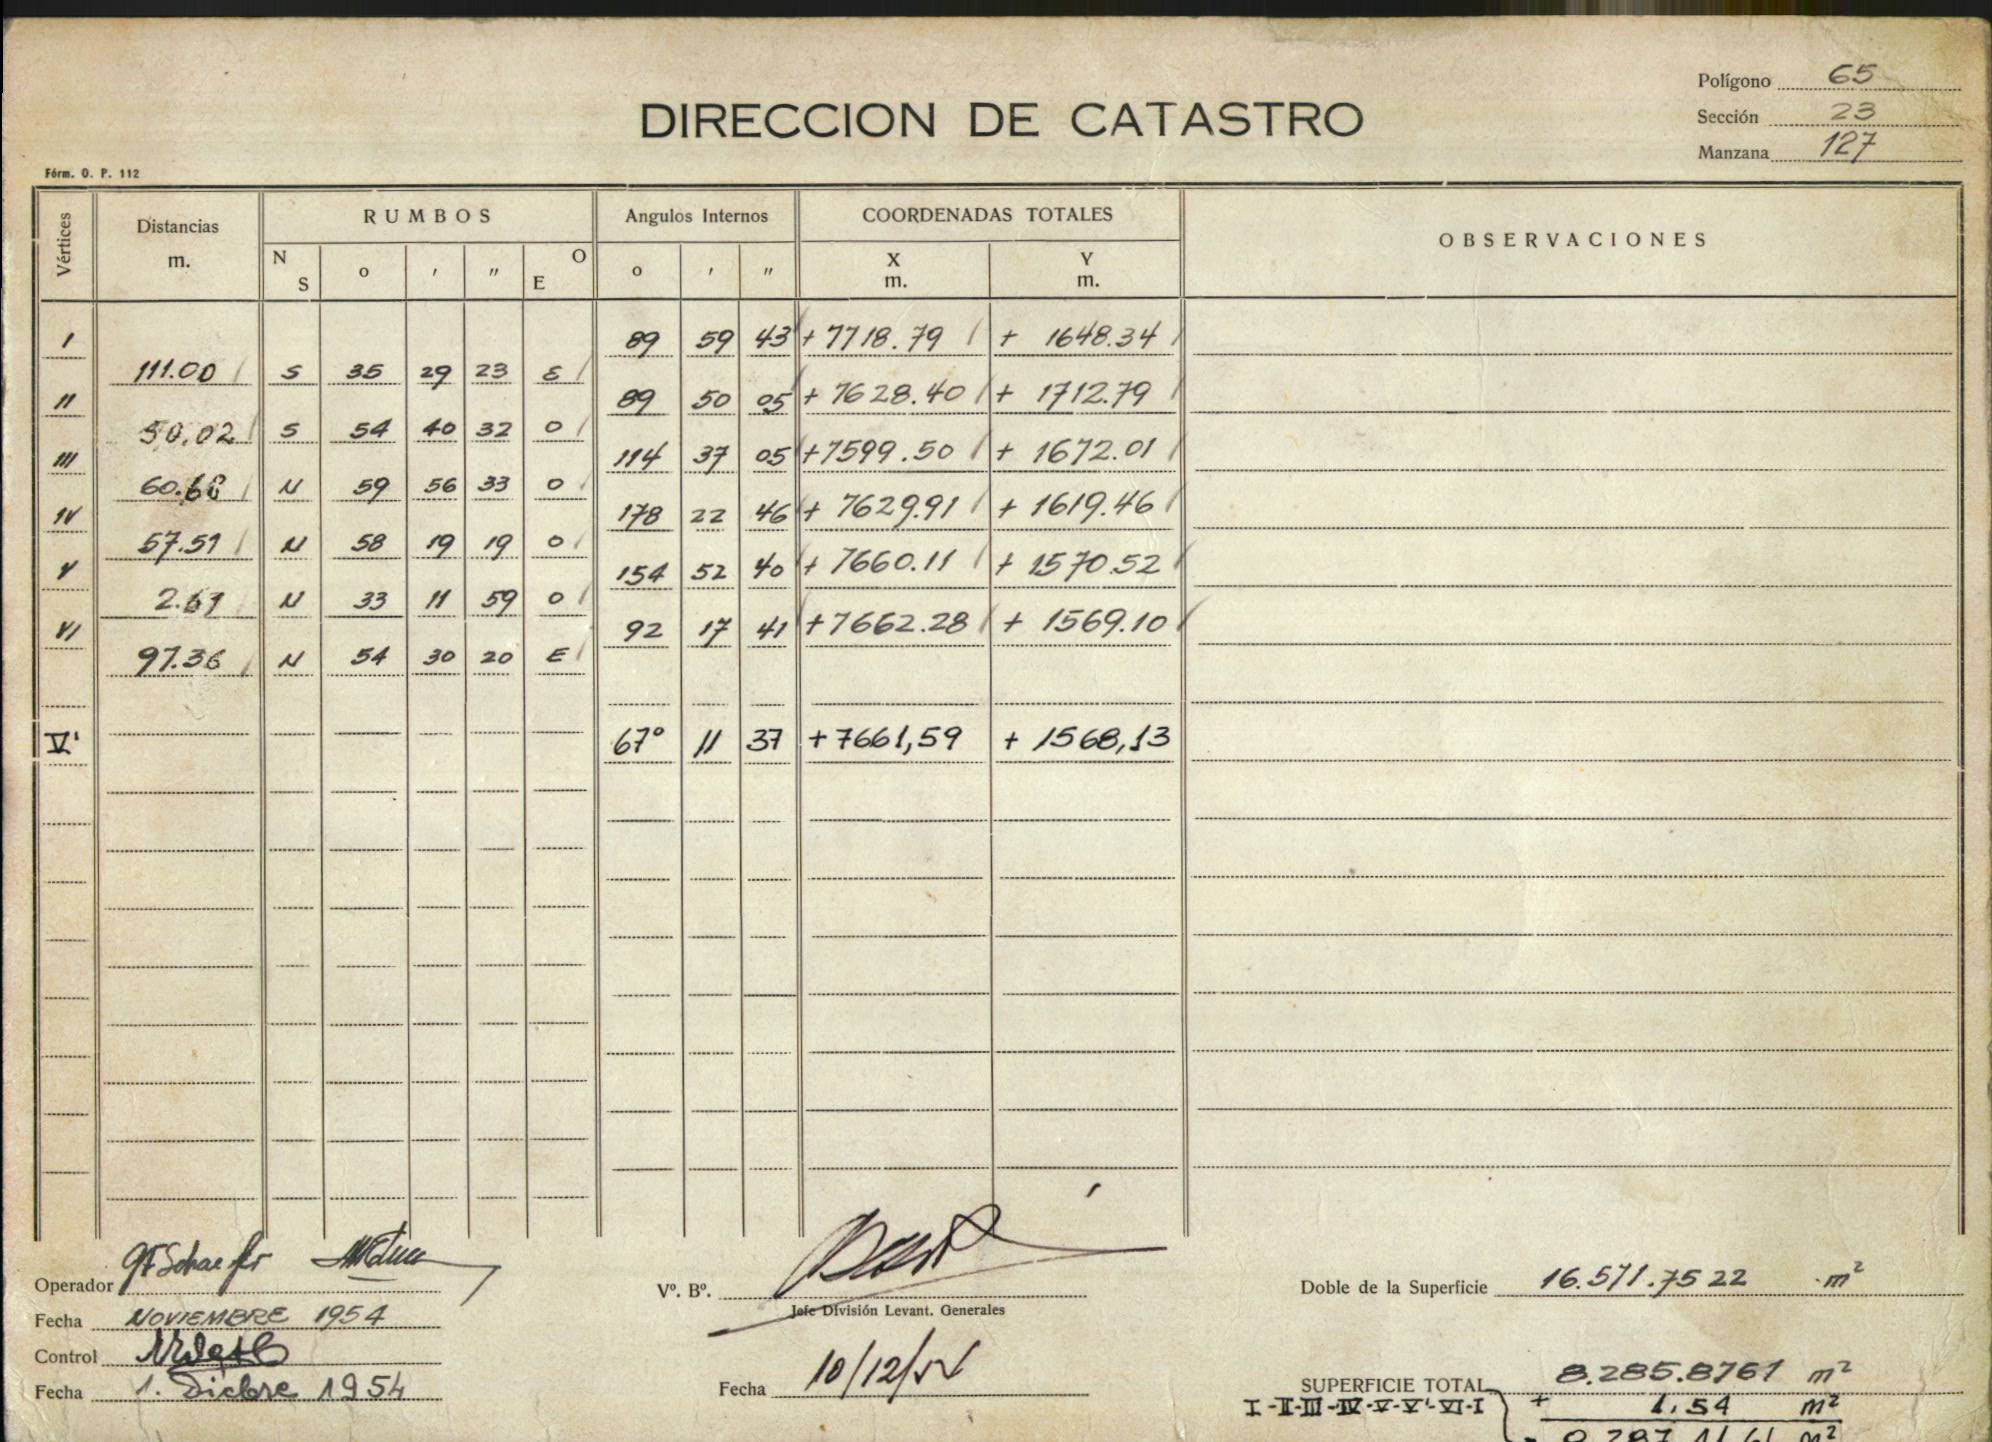 Polígono 65
DIRECCION DE CATASTRO
Sección 23
Manzana 127
Fórm. O. P. 112
Vértices Distancias m. RUMBOS Angulos Internos COORDENADAS TOTALES OBSERVACIONES
N S o ' " E O o ' " X m. Y m.
I 89 59 43 + 7718.79 + 1648.34
111.00 S 35 29 23 E
II 89 50 05 + 7628.40 + 1712.79
50.02 S 54 40 32 O
III 114 37 05 + 7599.50 + 1672.01
60.68 N 59 56 33 O
IV 178 22 46 + 7629.91 + 1619.46
57.51 N 58 19 19 O
V 154 52 40 + 7660.11 + 1570.52
2.61 N 33 11 59 O
VI 92 17 41 + 7662.28 + 1569.10
97.36 N 54 30 20 E
V' 67° 11 37 + 7661,59 + 1568,13
Operador
Vº. Bº.
Doble de la Superficie 16.571.7522 m²
Jefe División Levant. Generales
Fecha NOVIEMBRE 1954
Control
Fecha 1. Dicbre 1954
Fecha 10/12/54
SUPERFICIE TOTAL 8.285.8761 m²
I-II-III-IV-V-V'-VI-I + 1.54 m²